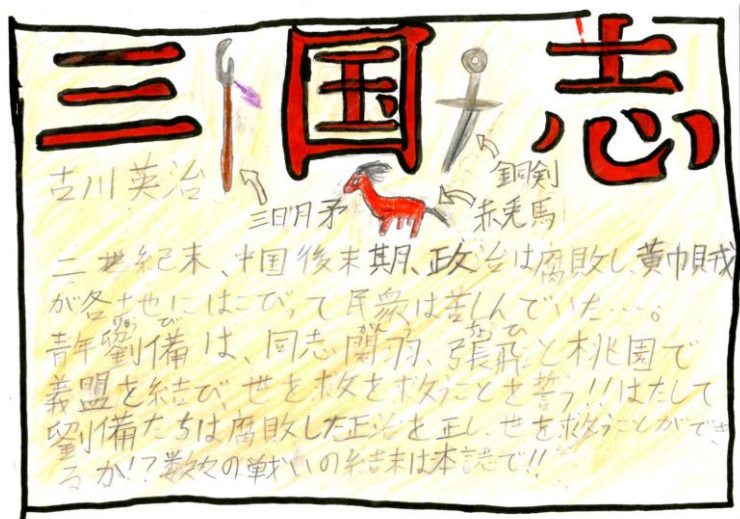 三国志
古川英治
三日月矛
銅剣
赤兎馬
二世紀末、中国後末期、政治は腐敗し、黄巾賊
が各地にはこびって民衆は苦しんでいた…。
青年劉備は、同志関羽、張飛と桃園で
義盟を結び、世を救をを救うことを誓う!!はたして
劉備たちは腐敗した正治を正し、世を救うことができ
るか!?数々の戦いの結末は本誌で!!